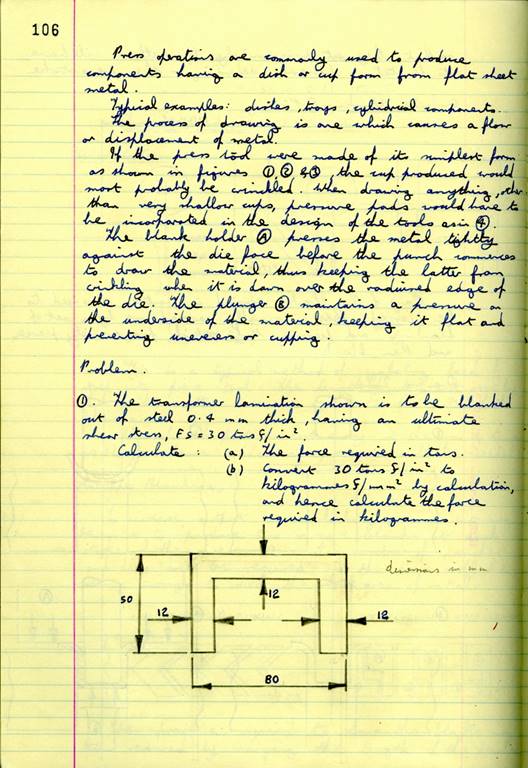 106
Press operations are commonly used to produce
components having a dish or cup form from flat sheet
metal.
Typical examples: dishes, trays, cylindrical components.
The process of drawing is one which causes a flow
or displacement of metal.
If the press tool were made of its simplest form
as shown in figures ①, ② & ③, the cup produced would
most probably be crinkled. When drawing anything, other
than very shallow cups, pressure pads would have to
be incorporated in the design of the tools as in ④.
The blank holder Ⓐ presses the metal tightly
against the die face before the punch commences
to draw the material, thus keeping the latter from
crinkling when it is drawn over the radiused edge of
the die. The plunger Ⓑ maintains a pressure on
the underside of the material, keeping it flat and
preventing uneveness or cupping.
Problem.
①. The transformer lamination shown is to be blanked
out of steel 0.4 mm thick, having an ultimate
shear stress, FS = 30 tons f/in²
Calculate: (a) The force required in tons.
(b) Convert 30 tons f/in² to
kilogrammes f/mm² by calculation,
and hence calculate the force
required in kilogrammes.
dimensions in mm
50
12
12
12
80